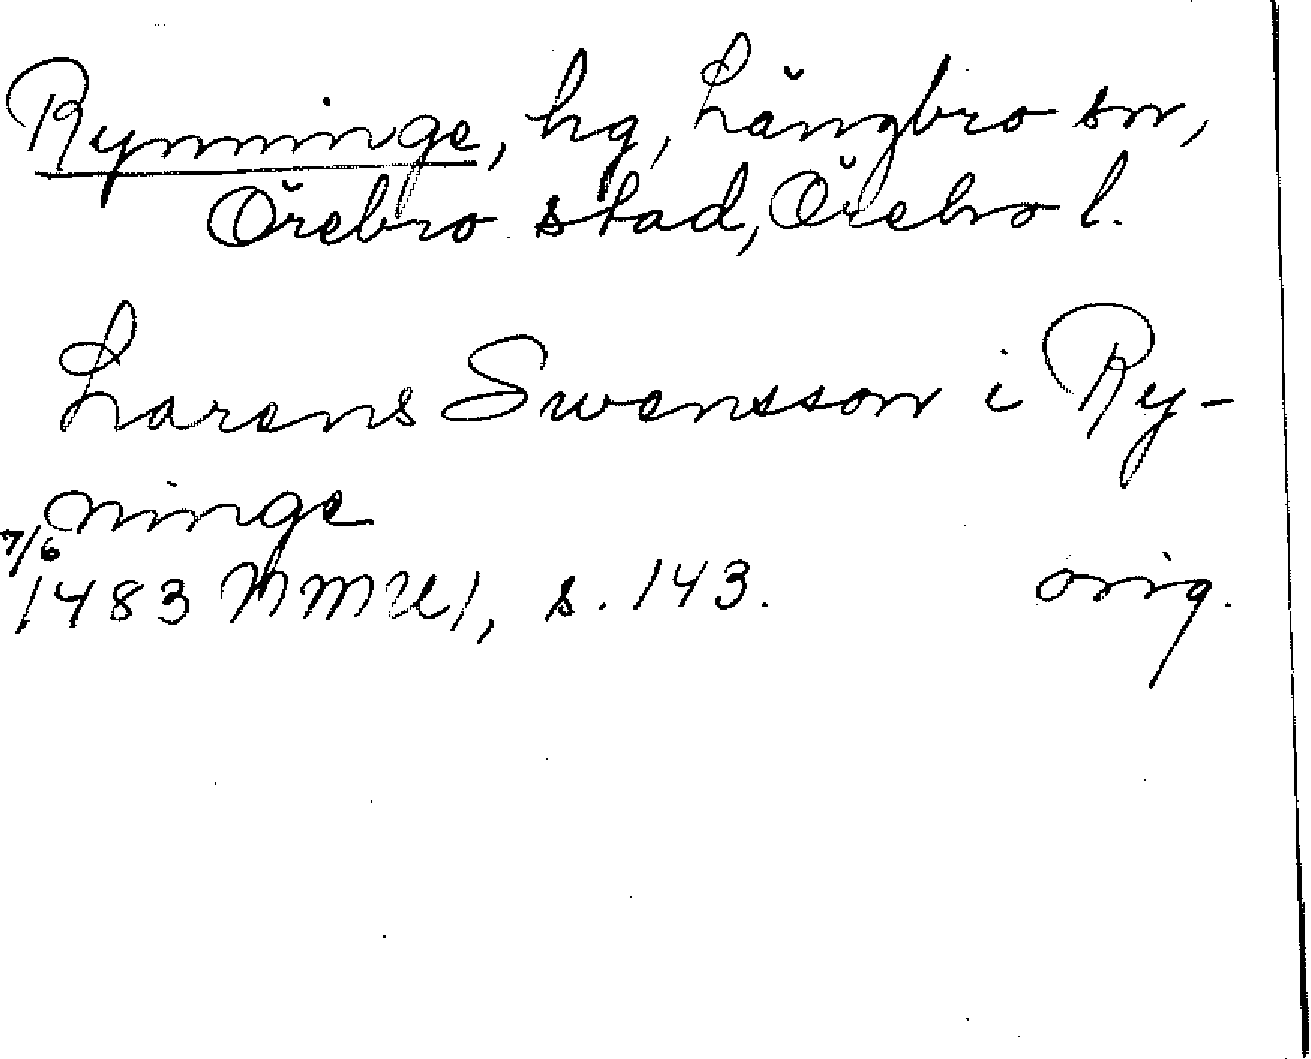 Rynninge, hg, Långbro sn,
Örebro stad, Örebro l.
Larens Swensson i Ry-
ninge
7/6
1483 MMU1, s. 143. orig.